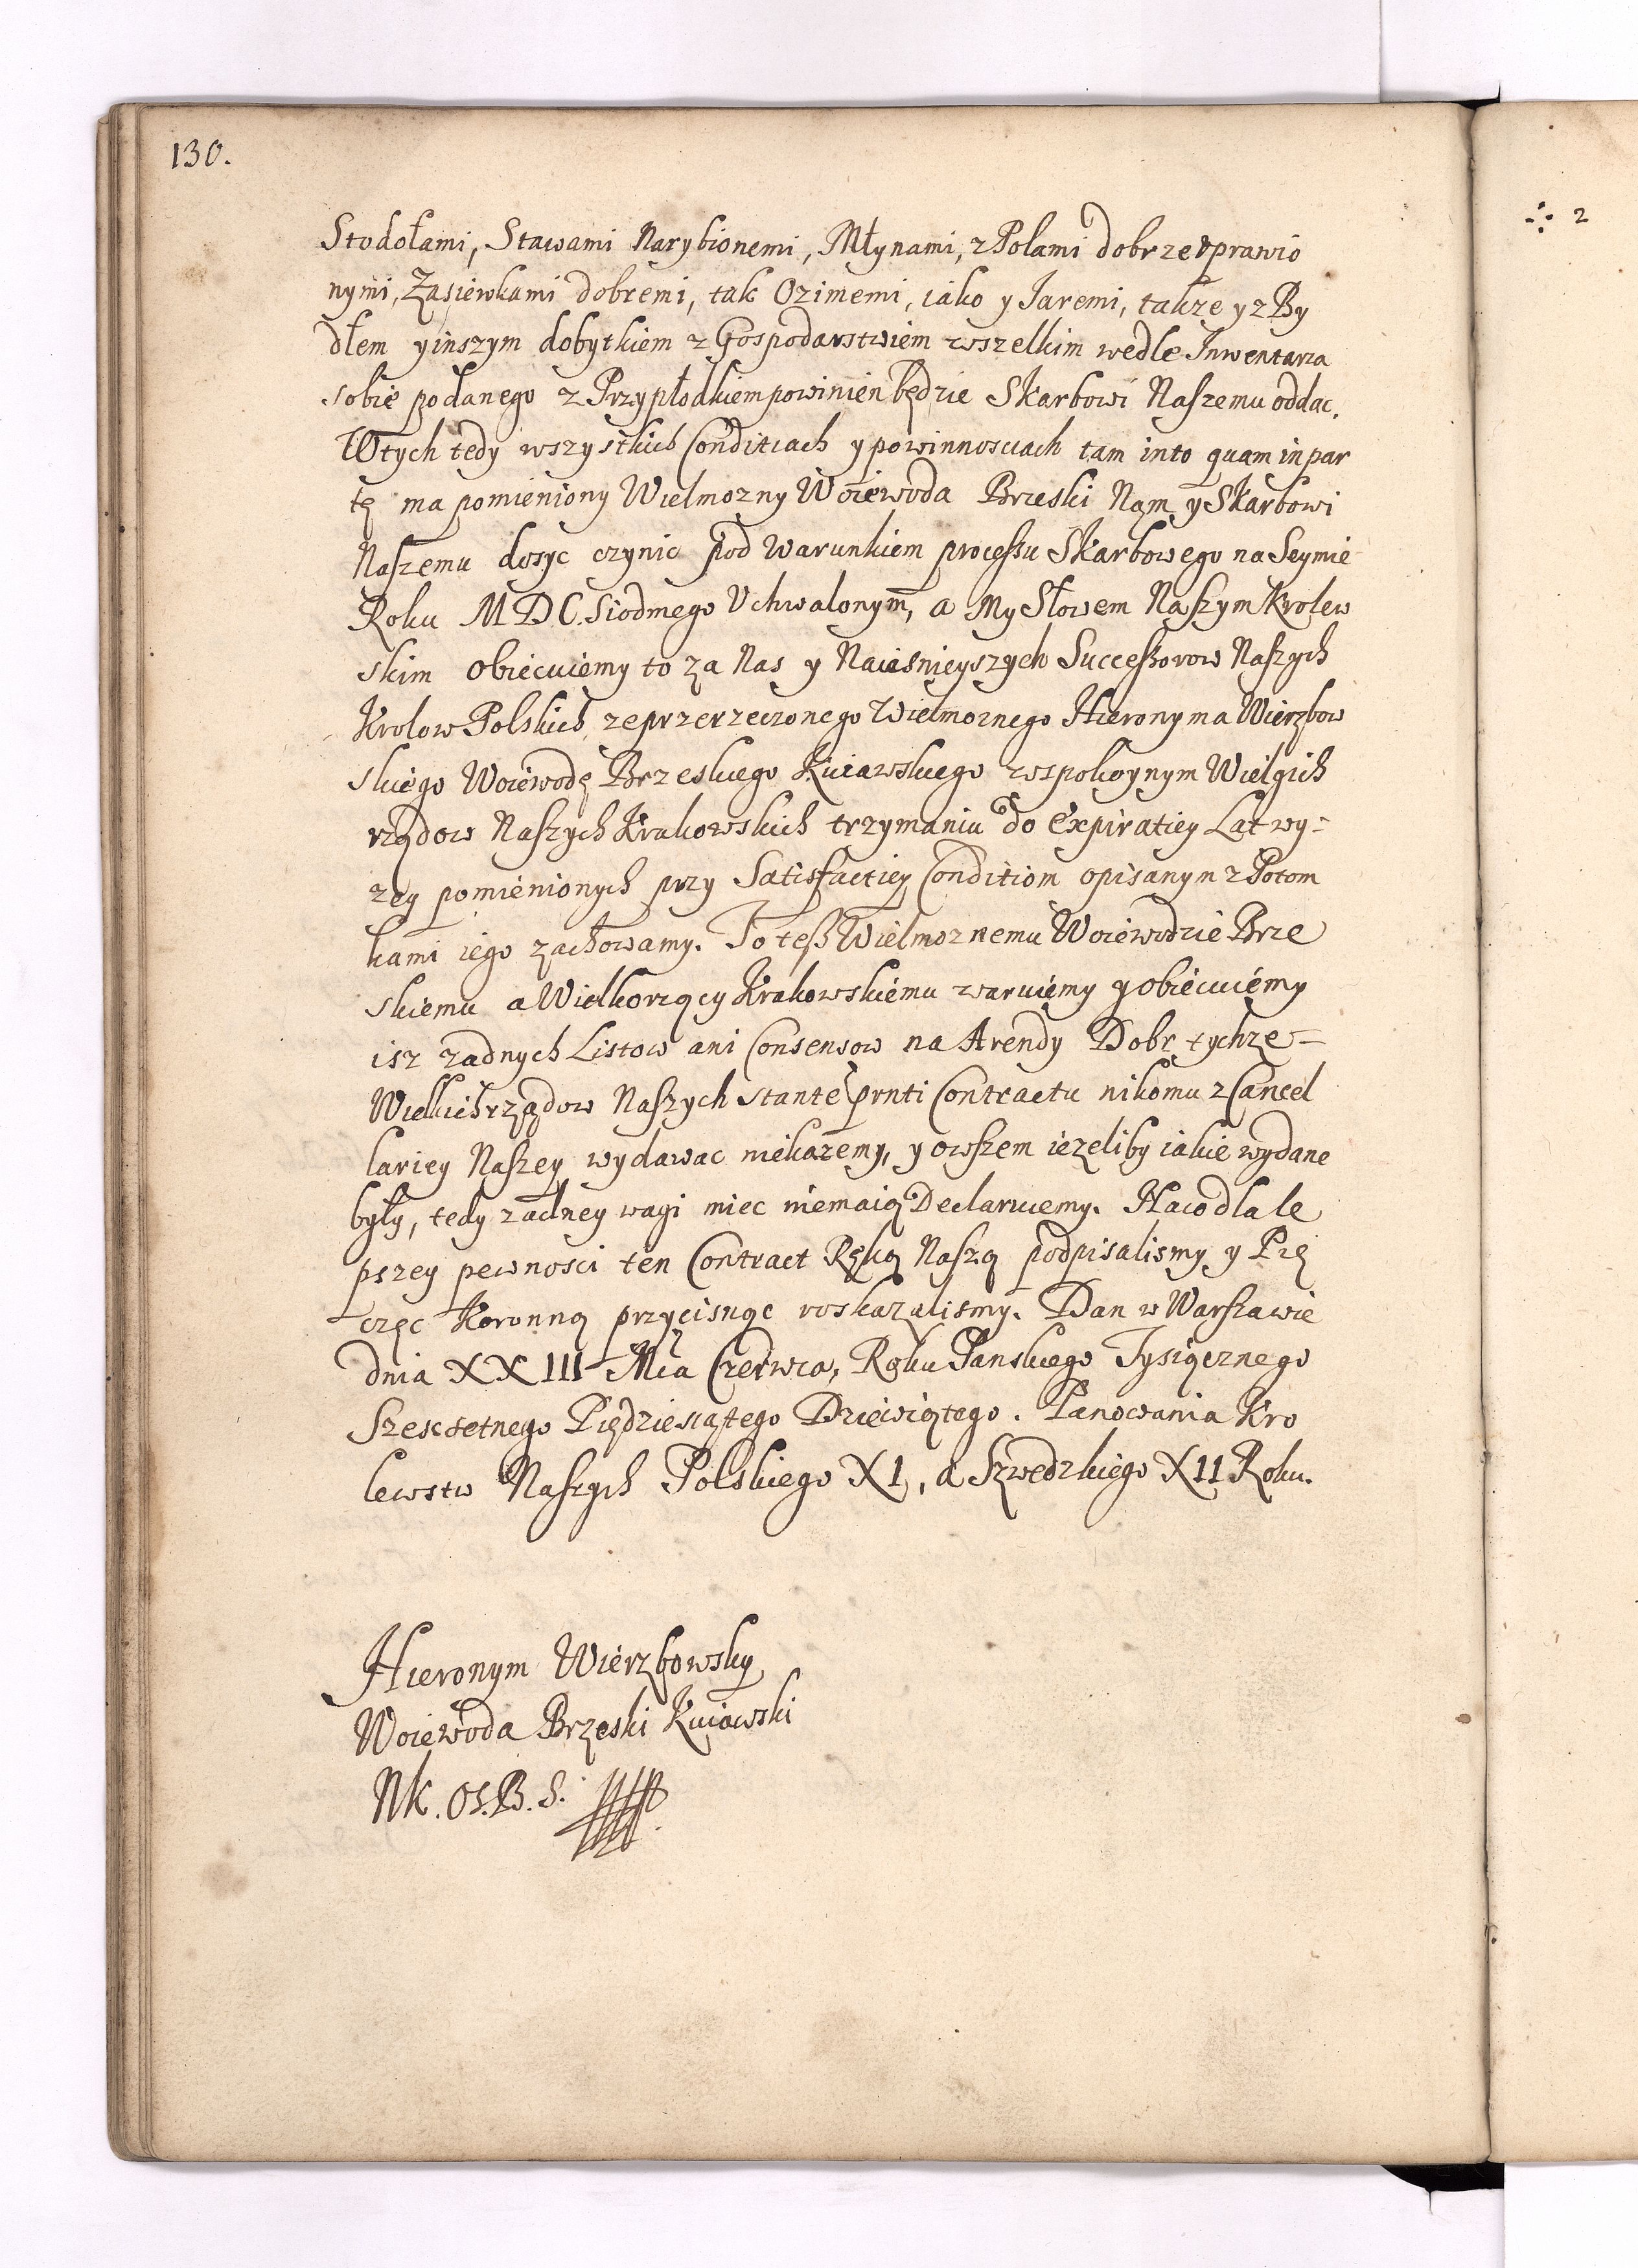 130.
Stodołami, Stawami Narybionemi, Młynami, z Polami dobrze vprawio
nymi, Zasiewkami dobremi, tak Ozimemi, iako y Jaremi, takze y z By
dłem y inszym dobytkiem z Gospodarstwiem wszelkim wedle Inwentarza
sobie podanego z Przypłodkiem powinien będzie Skarbowi Naszemu oddac.
W tych tedy wszystkich Conditiach y powinnosciach tam in toto quam in par
tę ma pomieniony Wielmozny Woiewoda Brzeski Nam y Skarbowi
Naszemu dosyc czynic pod Warunkiem processu Skarbowego na Seymie
Roku MDC. Siodmego Vchwalonym, a My Słowem Naszym Krolew
skim obiecuiemy to za Nas y Naiesnieyszych Successorow Naszych
Krolow Polskich, ze przerzeczonego Wielmoznego Hieronyma Wierzbow
skiego Woiewodę Brzeskiego Kuiawskiego w spokoynym Wielgich
rządow Naszych Krakowskich trzymaniu do Expiratiey Lat wy=
zey pomienionych przy Satisfactiey Conditiom opisanym z Potom
kami iego zachowamy. To tesz Wielmoznemu Woiewodzie Brze
skiemu a Wielkorządcy Krakowskiemu waruiemy y obiecuiemy
isz zadnych Listow ani Consensow na Arendy Dobr tychze=
Wielkichrządow Naszych stante prnti Contractu nikomu z Cancel
lariey Naszey wydawac niekazemy, y owszem iezeliby iakie wydane
były, tedy zadney wagi miec niemaią Declaruiemy. Na co dla le
pszey pewnosci ten Contract Ręką Naszą podpisalismy y Pie
częc Koronną przycisnąc roskazalismy. Dan w Warszawie
dnia XXIII Mca Czerwca, Roku Panskiego Tysiącznego
Szescsetnego Piędziesiątego Dziewiątego. Panowania Kro
lewstw Naszych Polskiego XI, a Szwedzkiego XII Roku.
Hieronym Wierzbowsky
Woiewoda Brzeski Kuiawski
NK. OS. B. S.
2